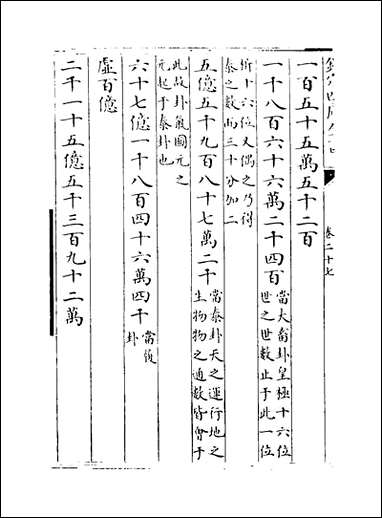 卷二十七
一百五十五萬五千二百
一千八百六十六萬二千四百
當大畜卦皇極十六位
世之世數止于此一位
衍十六位又偶之乃得
泰之數而三十分加二
五億五千九百八十七萬二千
當泰卦天之運行地之
生物物之通數皆會于
此故卦氣圖元之
元起于泰卦也
六十七億一千八百四十六萬四千
當履
卦
虛百億
二千一十五億五千三百九十二萬